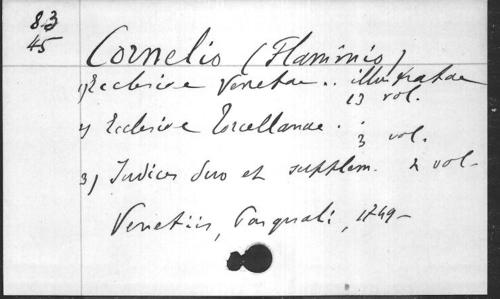 83
45
Cornelio (Flaminio)
1) Ecclesiae Venetae .. illustratae
13 vol.
2) Ecclesiae Torcellanae . .
3 vol.
3) Indices duo et supplem. 2 vol.
Venetiis, Pasquali, 1749-